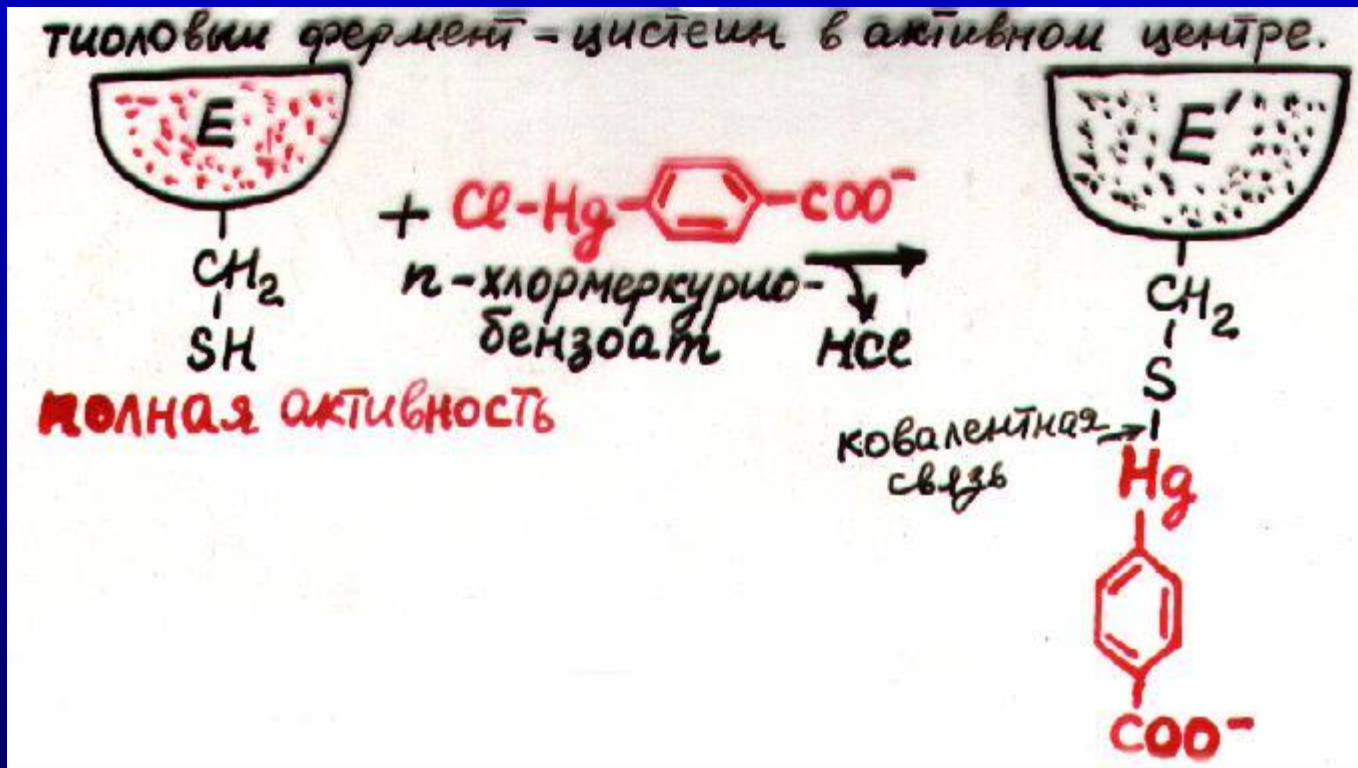 тиоловый фермент - цистеин в активном центре.
E
CH₂
SH
полная активность
+ Cl-Hg- -COO⁻
п-хлормеркурио-
бензоат
HCl
E′
CH₂
S
ковалентная
связь
Hg
COO⁻